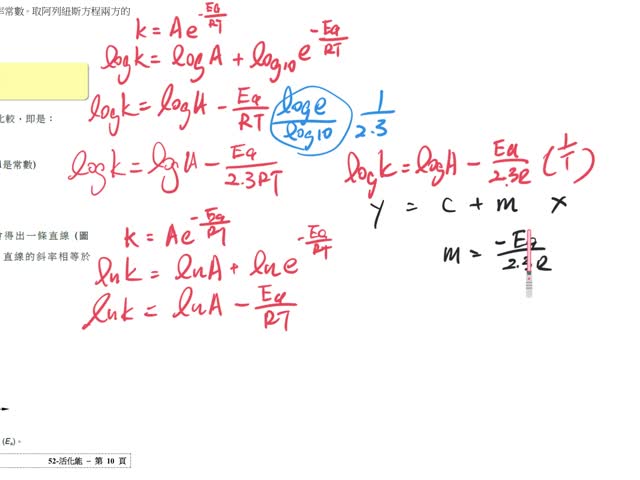 常數。取阿列紐斯方程兩方的
比較，即是：
是常數)
得出一條直線 (圖
直線的斜率相等於
(Ea)。
52-活化能 – 第 10 頁
k = Ae^(-Ea/RT)
log k = log A + log10 e^(-Ea/RT)
log k = log A - Ea/RT (log e / log 10) 1/2.3
log k = log A - Ea/2.3RT
log k = log A - Ea/2.3R (1/T)
y = c + m x
m = -Ea/2.3R
k = Ae^(-Ea/RT)
ln k = ln A + ln e^(-Ea/RT)
ln k = ln A - Ea/RT